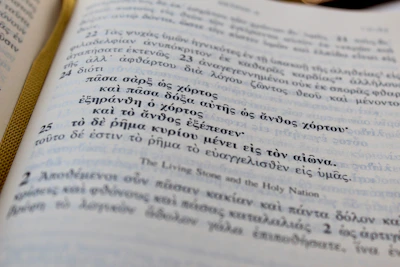 22 Τὰς ψυχὰς ὑμῶν ἡγνικότες ἐν τῇ ὑπακοῇ τῆς ἀληθείας εἰς
φιλαδελφίαν ἀνυπόκριτον, ἐκ καθαρᾶς καρδίας ἀλλήλους
ἀγαπήσατε ἐκτενῶς 23 ἀναγεγεννημένοι οὐκ ἐκ σπορᾶς
τῆς ἀλλ᾽ ἀφθάρτου διὰ λόγου ζῶντος θεοῦ καὶ μένοντο
24 διότι
πᾶσα σὰρξ ὡς χόρτος
καὶ πᾶσα δόξα αὐτῆς ὡς ἄνθος χόρτου·
ἐξηράνθη ὁ χόρτος
καὶ τὸ ἄνθος ἐξέπεσεν·
25 τὸ δὲ ῥῆμα κυρίου μένει εἰς τὸν αἰῶνα.
τοῦτο δέ ἐστιν τὸ ῥῆμα τὸ εὐαγγελισθὲν εἰς ὑμᾶς.
The Living Stone and the Holy Nation
2 Ἀποθέμενοι οὖν πᾶσαν κακίαν καὶ πάντα δόλον κα
κρίσεις καὶ φθόνους καὶ πάσας καταλαλιάς, 2 ὡς ἀρτιγ
βρέφη τὸ λογικὸν ἄδολον γάλα ἐπιποθήσατε, ἵνα ἐν